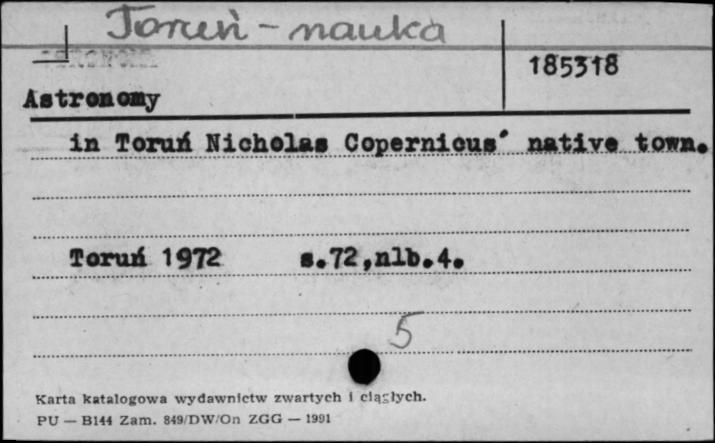 Toruń - nauka
185318
Astronomy
in Toruń Nicholas Copernicus´ native town.
Toruń 1972 s.72,nlb.4.
5
Karta katalogowa wydawnictw zwartych i ciągłych.
PU — B144 Zam. 849/DW/On ZGG — 1991